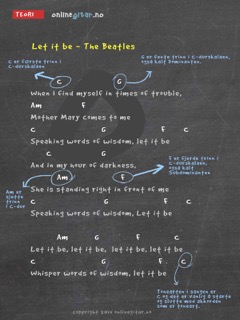 TEORI onlinegitar.no
Let it be - The Beatles
C er første trinn i
C-durskalaen
G er femte trinn i C-durskalaen,
også kalt Dominanten.
C G
When I find myself in times of trouble,
Am F
Mother Mary comes to me
C G F C
Speaking words of wisdom, let it be
C G
And in my hour of darkness,
Am F
F er fjerde trinn i
C-durskalaen,
også kalt
Subdominanten
Am er
sjette
trinn i
C-dur
She is standing right in front of me
C G F C
Speaking words of wisdom, Let it be
Am G F C
Let it be, let it be, let it be, let it be
C G F C
Whisper words of wisdom, let it be
Tonearten i sangen er
C og det er vanlig å starte
og slutte med akkorden
som er toneart.